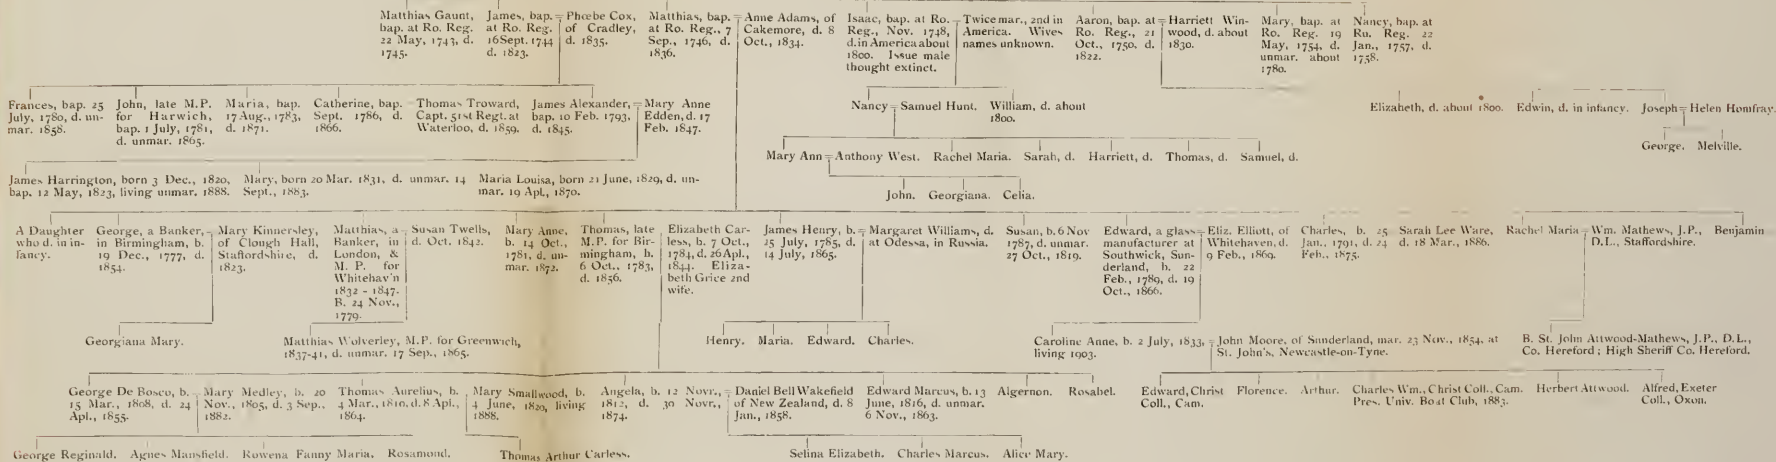 Matthias Gaunt,
bap. at Ro. Reg.
22 May, 1743, d.
1745.
James, bap.
at Ro. Reg.
16 Sept. 1744
d. 1823.
Phœbe Cox,
of Cradley,
d. 1835.
Matthias, bap.
at Ro. Reg., 7
Sep., 1746, d.
1836.
Anne Adams, of
Cakemore, d. 8
Oct., 1834.
Isaac, bap. at Ro.
Reg., Nov. 1748,
d. in America about
1800. Issue male
thought extinct.
Twice mar., 2nd in
America. Wives
names unknown.
Aaron, bap. at
Ro. Reg., 21
Oct., 1750, d.
1822.
Harriett Win-
wood, d. about
1830.
Mary, bap. at
Ro. Reg. 19
May, 1754, d.
unmar. about
1780.
Nancy, bap. at
Ru. Reg. 22
Jan., 1757, d.
1758.
Frances, bap. 25
July, 1780, d. un-
mar. 1858.
John, late M.P.
for Harwich,
bap. 1 July, 1781,
d. unmar. 1865.
Maria, bap.
17 Aug., 1783,
d. 1871.
Catherine, bap.
Sept. 1786, d.
1866.
Thomas Troward,
Capt. 51st Regt. at
Waterloo, d. 1859.
James Alexander,
bap. 10 Feb. 1793,
d. 1845.
Mary Anne
Edden, d. 17
Feb. 1847.
Nancy = Samuel Hunt.
William, d. about
1800.
Elizabeth, d. about 1800.
Edwin, d. in infancy.
Joseph = Helen Homfray.
George. Melville.
Mary Ann = Anthony West. Rachel Maria. Sarah, d. Harriett, d. Thomas, d. Samuel, d.
John. Georgiana. Celia.
James Harrington, born 3 Dec., 1820,
bap. 12 May, 1823, living unmar. 1888.
Mary, born 20 Mar. 1831, d. unmar. 14
Sept., 1883.
Maria Louisa, born 21 June, 1829, d. un-
mar. 19 Apl., 1870.
A Daughter
who d. in in-
fancy.
George, a Banker,
in Birmingham, b.
19 Dec., 1777, d.
1854.
Mary Kinnersley,
of Clough Hall,
Staffordshire, d.
1823.
Matthias, a
Banker, in
London, &
M. P. for
Whitehav'n
1832 - 1847.
B. 24 Nov.,
1779.
Susan Twells,
d. Oct. 1842.
Mary Anne,
b. 14 Oct.,
1781, d. un-
mar. 1872.
Thomas, late
M.P. for Bir-
mingham, b.
6 Oct., 1783,
d. 1856.
Elizabeth Car-
less, b. 7 Oct.,
1784, d. 26 Apl.,
1844. Eliza-
beth Grice 2nd
wife.
James Henry, b.
25 July, 1785, d.
14 July, 1865.
Margaret Williams, d.
at Odessa, in Russia.
Susan, b. 6 Nov
1787, d. unmar.
27 Oct., 1819.
Edward, a glass
manufacturer at
Southwick, Sun-
derland, b. 22
Feb., 1789, d. 19
Oct., 1866.
Eliz. Elliott, of
Whitehaven, d.
9 Feb., 1869.
Charles, b. 25
Jan., 1791, d. 24
Feb., 1875.
Sarah Lee Ware,
d. 18 Mar., 1886.
Rachel Maria = Wm. Mathews, J.P.,
D.L., Staffordshire.
Benjamin
Georgiana Mary.
Matthias Wolverley, M.P. for Greenwich,
1837-41, d. unmar. 17 Sep., 1865.
Henry. Maria. Edward. Charles.
Caroline Anne, b. 2 July, 1833,
living 1903.
John Moore, of Sunderland, mar. 23 Nov., 1854, at
St. John's, Newcastle-on-Tyne.
B. St. John Attwood-Mathews, J.P., D.L.,
Co. Hereford ; High Sheriff Co. Hereford.
George De Bosco, b.
15 Mar., 1808, d. 24
Apl., 1855.
Mary Medley, b. 20
Nov., 1805, d. 3 Sep.,
1882.
Thomas Aurelius, b.
4 Mar., 1810, d. 8 Apl.,
1864.
Mary Smallwood, b.
4 June, 1820, living
1888.
Angela, b. 12 Novr.,
1812, d. 30 Novr.,
1874.
Daniel Bell Wakefield
of New Zealand, d. 8
Jan., 1858.
Edward Marcus, b. 13
June, 1816, d. unmar.
6 Nov., 1863.
Algernon. Rosabel.
Edward, Christ
Coll., Cam.
Florence. Arthur.
Charles Wm., Christ Coll., Cam.
Pres. Univ. Boat Club, 1883.
Herbert Attwood.
Alfred, Exeter
Coll., Oxon.
George Reginald. Agnes Mansfield. Rowena Fanny Maria. Rosamond. Thomas Arthur Carless. Selina Elizabeth. Charles Marcus. Alice Mary.